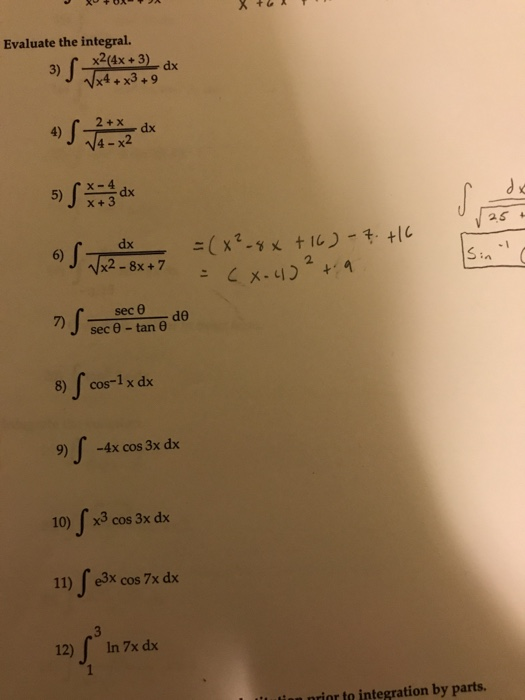 Evaluate the integral.
3) ∫ x²(4x + 3) / √(x⁴ + x³ + 9) dx
4) ∫ (2 + x) / √(4 – x²) dx
5) ∫ (x – 4) / (x + 3) dx
6) ∫ dx / √(x² – 8x + 7) = (x² - 8x + 16) - 7 + 16
= (x-4)² + 9
∫ dx / √25 +
Sin⁻¹ (
7) ∫ sec θ / (sec θ – tan θ) dθ
8) ∫ cos–1 x dx
9) ∫ –4x cos 3x dx
10) ∫ x3 cos 3x dx
11) ∫ e3x cos 7x dx
12) ∫₁³ ln 7x dx
prior to integration by parts.